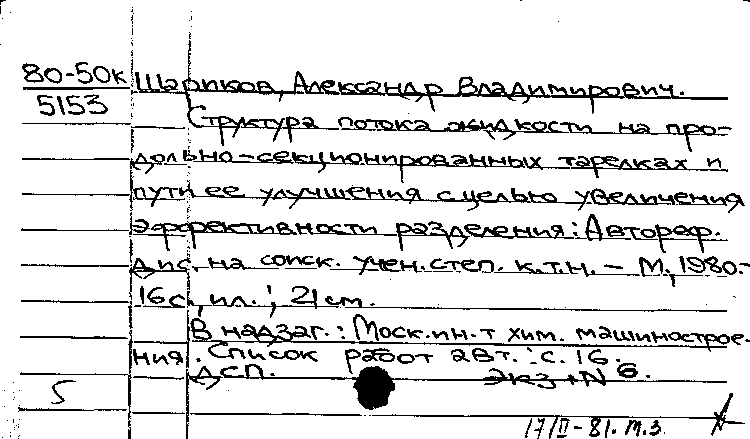 80-50к Шариков, Александр Владимирович.
5153
Структура потока жидкости на про-
дольно-секционированных тарелках и
пути ее улучшения с целью увеличения
эффективности разделения: Автореф.
дис. на соиск. учен. степ. к.т.н. - М., 1980.-
16с., ил.; 21см.
В надзаг.: Моск. ин-т хим. машинострое-
ния. Список работ авт.: с. 16.
ДСП. Экз +N 6.
5
17/II-81. М.З.